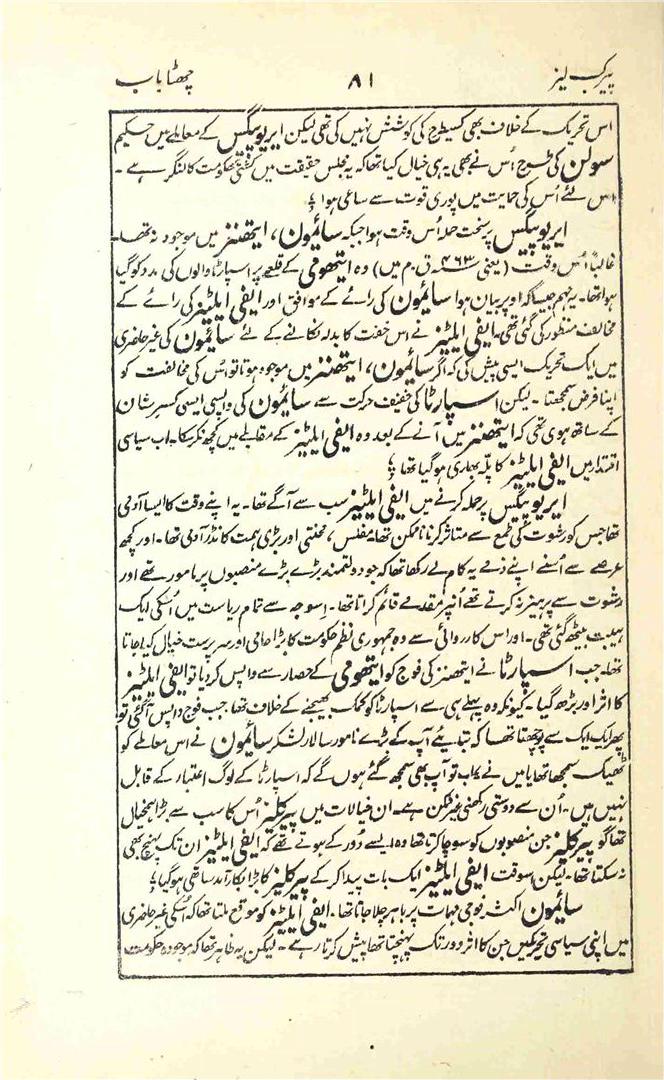 پیرکلیز ۸۱ چھٹا باب
اس تحریک کے خلاف بھی کسیطرح کی کوشش نہیں کی تھی لیکن ایریوپیگس کے معاملے میں حکیم
سولن کی طرح اُس نے بھی یہ ہی خیال کیا تھا کہ یہ مجلس حقیقت میں کشتیٔ حکومت کا لنگر ہے ۔
اس لئے اُس کی حمایت میں پوری قوت سے ساعی ہوا ؛
ایریوپیگس پر سخت حملہ اُس وقت ہوا جبکہ سائیمون، ایتھنز میں موجود نہ تھا۔
غالباً اُس وقت (یعنی ۴۶۳ ق۔م میں) وہ ایتھومی کے قلعے پر اسپارٹا والوں کی مدد کو گیا
ہوا تھا۔ یہ مہم جیسا کہ اوپر بیان ہوا سائیمون کی رائے کے موافق اور ایفی ایلٹیز کی رائے کے
مخالف منظور کی گئی تھی۔ ایفی ایلٹیز نے اس خفت کا بدلہ نکالنے کے لئے سائیمون کی غیر حاضری
میں ایک تحریک ایسی پیش کی کہ اگر سائیمون، ایتھنز میں موجود ہوتا تو اُس کی مخالفت کو
اپنا فرض سمجھتا ۔ لیکن اسپارٹا کی خفیف حرکت سے سائیمون کی واپسی ایسی کسر شان
کے ساتھ ہوی تھی کہ ایتھنز میں آنے کے بعد وہ ایفی ایلٹیز کے مقابلے میں کچھ نکر سکا۔ اب سیاسی
اقتدار میں ایفی ایلٹیز کا پلّہ بھاری ہو گیا تھا ؛
ایریوپیگس پر حملہ کرنے میں ایفی ایلٹیز سب سے آگے تھا۔ یہ اپنے وقت کا ایسا آدمی
تھا جس کو رشوت کی طمع سے متاثر کرنا ناممکن تھا۔ مفلس، محنتی اور بڑی ہمت کا نڈر آدمی تھا۔ اور کچھ
عرصے سے اُسنے اپنے ذمے یہ کام لے رکھا تھا کہ جو دولتمند بڑے بڑے منصبوں پر مامور تھے اور
رشوت سے پرہیز نہ کرتے تھے اُنپر مقدمے قائم کراتا تھا۔ اسوجہ سے تمام ریاست میں اُسکی ایک
ہیبت بیٹھ گئی تھی۔ اور اس کارروائی سے وہ جمہوری نظم حکومت کا بڑا حامی اور سرپرست خیال کیا جاتا
تھا۔ جب اسپارٹا نے ایتھنز کی فوج کو ایتھومی کے حصار سے واپس کر دیا تو ایفی ایلٹیز
کا اثر اور بڑھ گیا ۔ کیونکہ وہ پہلے ہی سے اسپارٹا کو کمک بھیجنے کے خلاف تھا۔ جب فوج واپس آگئی تو
پھر ایک ایک سے پوچھتا تھا کہ بتایئے آپ کے بڑے نامور سالار لشکر سائیمون نے اس معاملے کو
ٹھیک سمجھا تھا یا میں نے ؟ اب تو آپ بھی سمجھ گئے ہوں گے کہ اسپارٹا کے لوگ اعتبار کے قابل
نہیں ہیں ۔ ان سے دوستی رکھنی غیر ممکن ہے۔ ان خیالات میں پیرکلیز اُس کا سب سے بڑا ہمخیال
تھا گو پیرکلیز جن منصوبوں کو سوچا کرتا تھا وہ ایسے دُور کے ہوتے تھے کہ ایفی ایلٹیز ان تک پہنچ بھی
نہ سکتا تھا۔ لیکن اسوقت ایفی ایلٹیز ایک بات پیدا کر کے پیرکلیز کا بڑا بکار آمد ساتھی ہو گیا ؛
سائیمون اکثر فوجی مہمات پر باہر چلا جاتا تھا۔ ایفی ایلٹیز کو موقع ملتا تھا کہ اُسکی غیر حاضری
میں اپنی سیاسی تحریکیں جن کا اثر دور تک پہنچتا تھا پیش کرتا رہے ۔ لیکن یہ ظاہر تھا کہ موجودہ حکومت